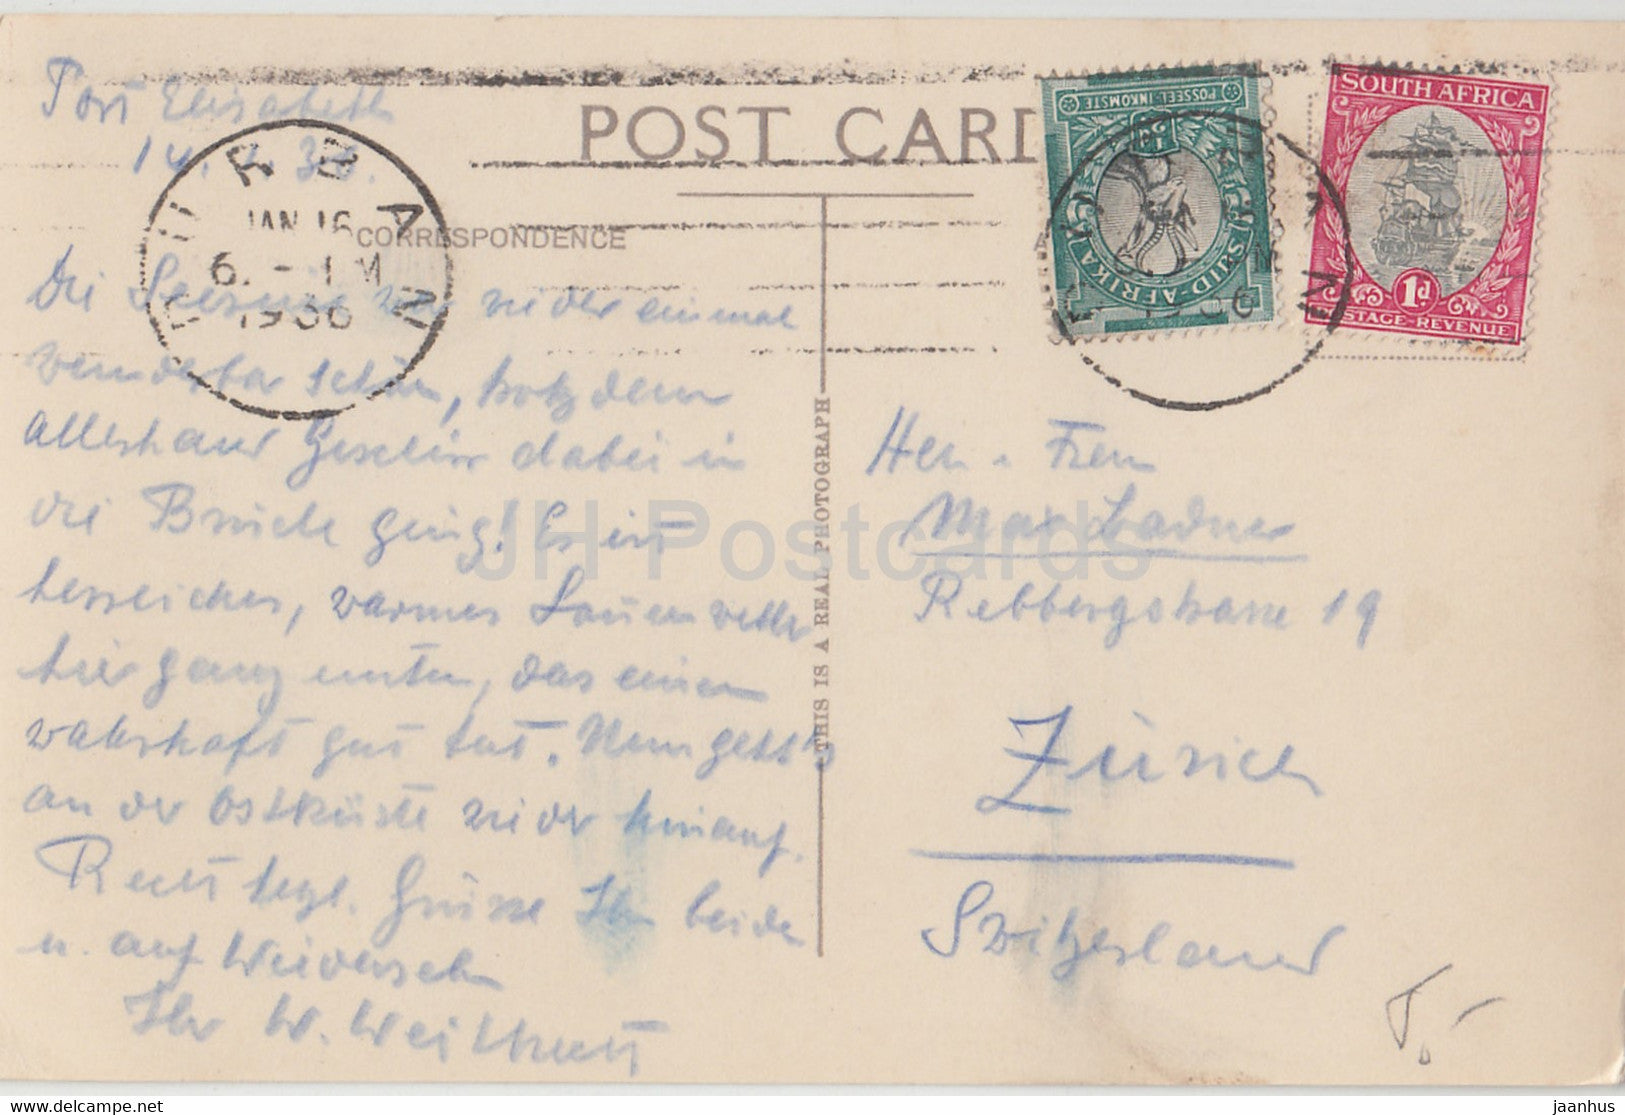 Port Elisabeth
14. 1. 36.
POST CARD
CORRESPONDENCE
DURBAN
JAN 16
6. - PM
1936
Die Seereise war wieder einmal
wunderbar schön, trotzdem
allerhand Geschirr dabei in
die Brüche ging! Es ist
herrliches, warmes Sonnenwetter
hier ganz unten, das einem
wahrhaft gut tut. Nun geht's
an der Ostküste wieder hinauf.
Recht herzl. Grüsse Ihnen beiden
u. auf Wiedersehn
Ihr W. Weithrett
THIS IS A REAL PHOTOGRAPH
POSSEEL-INKOMSTE
½d
SUID-AFRIKA
SOUTH AFRICA
1d
POSTAGE-REVENUE
DURBAN
1936
Herr u. Frau
Max Ladner
Rebbergstrasse 19
Zürich
Switzerland
JH Postcards
jaanhus